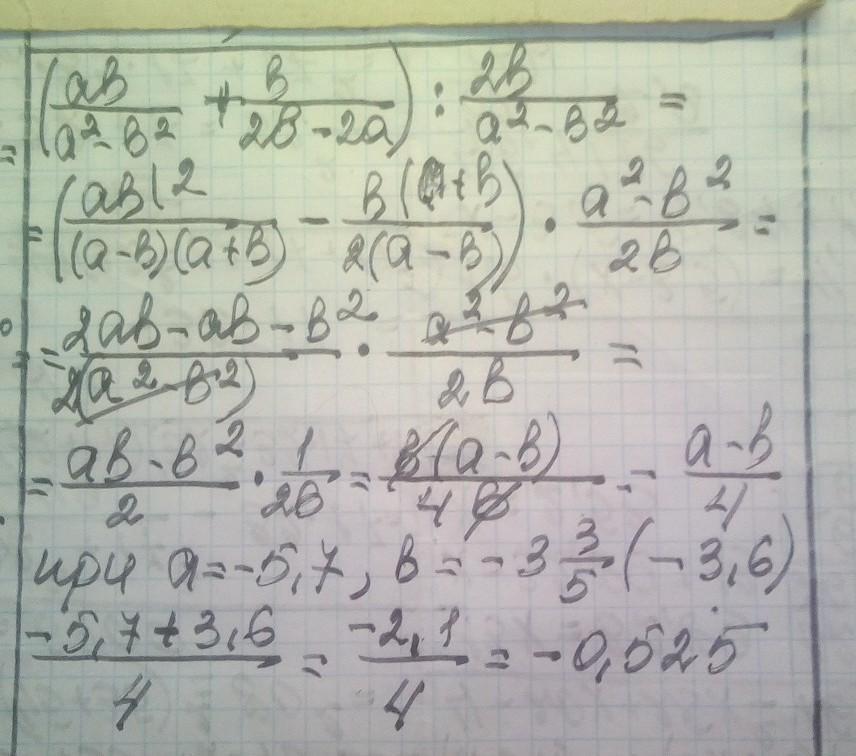 (ab/(a²-b²) + b/(2b-2a)) : 2b/(a²-b²) =
= (ab(2/((a-b)(a+b)) - b(a+b/(2(a-b))) · (a²-b²)/2b =
= (2ab-ab-b²)/(2(a²-b²)) · (a²-b²)/2b =
= (ab-b²)/2 · 1/2b = b(a-b)/4b = (a-b)/4
при a=-5,7, b=-3 3/5 (-3,6)
(-5,7+3,6)/4 = -2,1/4 = -0,525